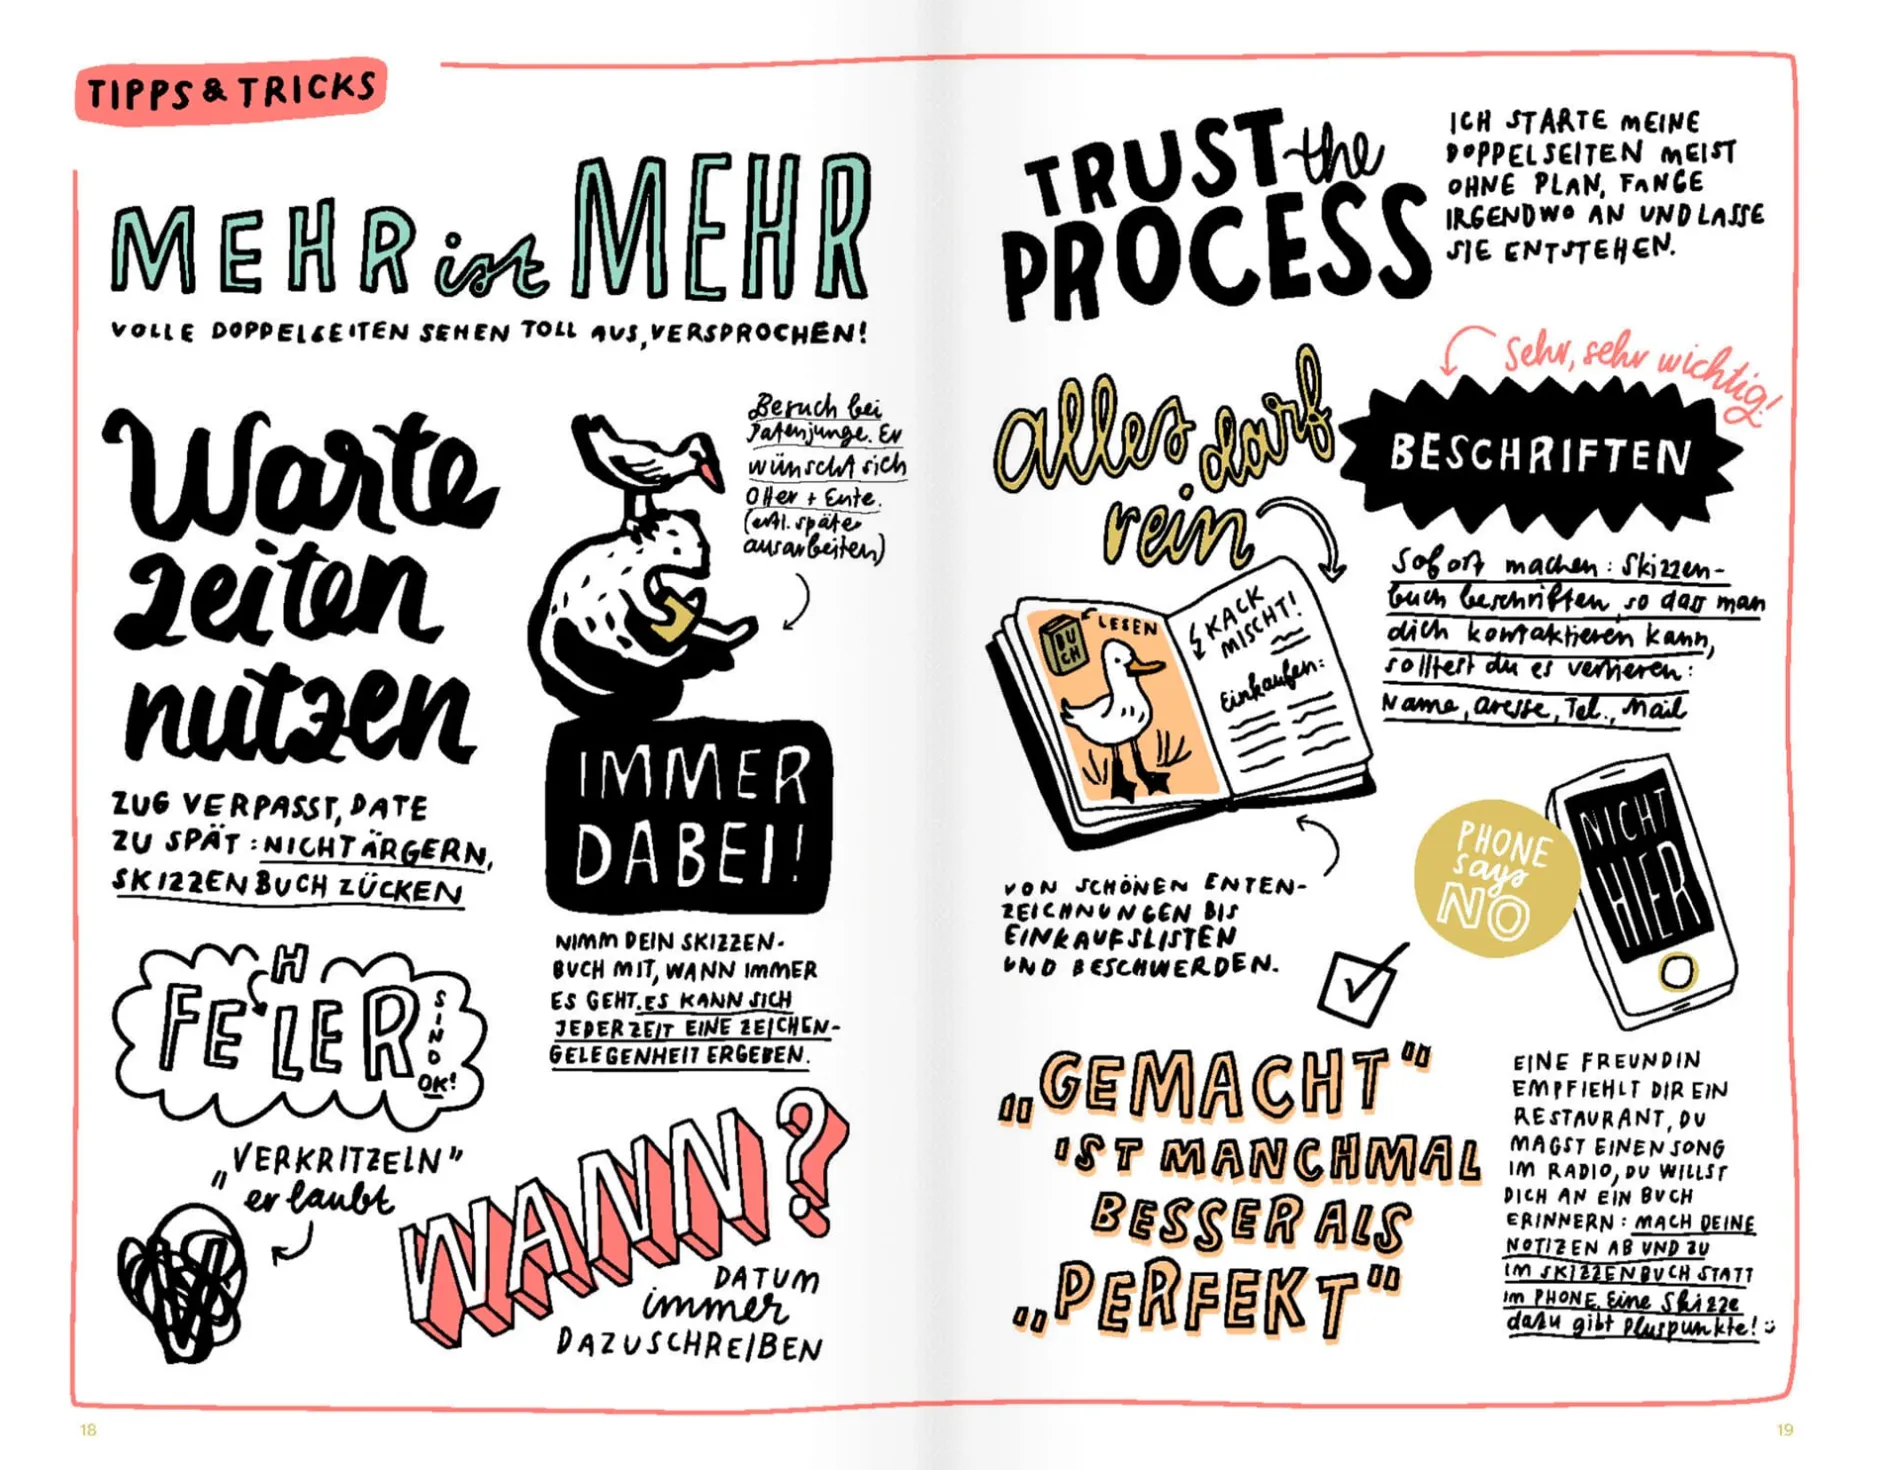 TIPPS & TRICKS
MEHR ist MEHR
VOLLE DOPPELSEITEN SEHEN TOLL AUS, VERSPROCHEN!
Warte
zeiten
nutzen
ZUG VERPASST, DATE
ZU SPÄT: NICHT ÄRGERN,
SKIZZENBUCH ZÜCKEN
Besuch bei
Patenjunge. Er
wünscht sich
Otter + Ente.
(evtl. später
ausarbeiten)
IMMER
DABEI!
NIMM DEIN SKIZZEN-
BUCH MIT, WANN IMMER
ES GEHT. ES KANN SICH
JEDERZEIT EINE ZEICHEN-
GELEGENHEIT ERGEBEN.
H
FELER
SIND
OK!
„VERKRITZELN"
erlaubt
WANN?
DATUM
immer
DAZUSCHREIBEN
18
TRUST the
PROCESS
ICH STARTE MEINE
DOPPELSEITEN MEIST
OHNE PLAN, FANGE
IRGENDWO AN UND LASSE
SIE ENTSTEHEN.
Alles darf
rein
BUCH
LESEN
KACK
MISCHT!
Einkaufen:
VON SCHÖNEN ENTEN-
ZEICHNUNGEN BIS
EINKAUFSLISTEN
UND BESCHWERDEN.
Sehr, sehr wichtig!
BESCHRIFTEN
Sofort machen: Skizzen-
buch beschriften, so dass man
dich kontaktieren kann,
solltest du es verlieren:
Name, Adresse, Tel., Mail
PHONE
says
NO
NICHT
HIER
„GEMACHT"
IST MANCHMAL
BESSER ALS
„PERFEKT"
EINE FREUNDIN
EMPFIEHLT DIR EIN
RESTAURANT, DU
MAGST EINEN SONG
IM RADIO, DU WILLST
DICH AN EIN BUCH
ERINNERN: MACH DEINE
NOTIZEN AB UND ZU
IM SKIZZENBUCH STATT
IM PHONE. Eine Skizze
dazu gibt Pluspunkte! :)
19